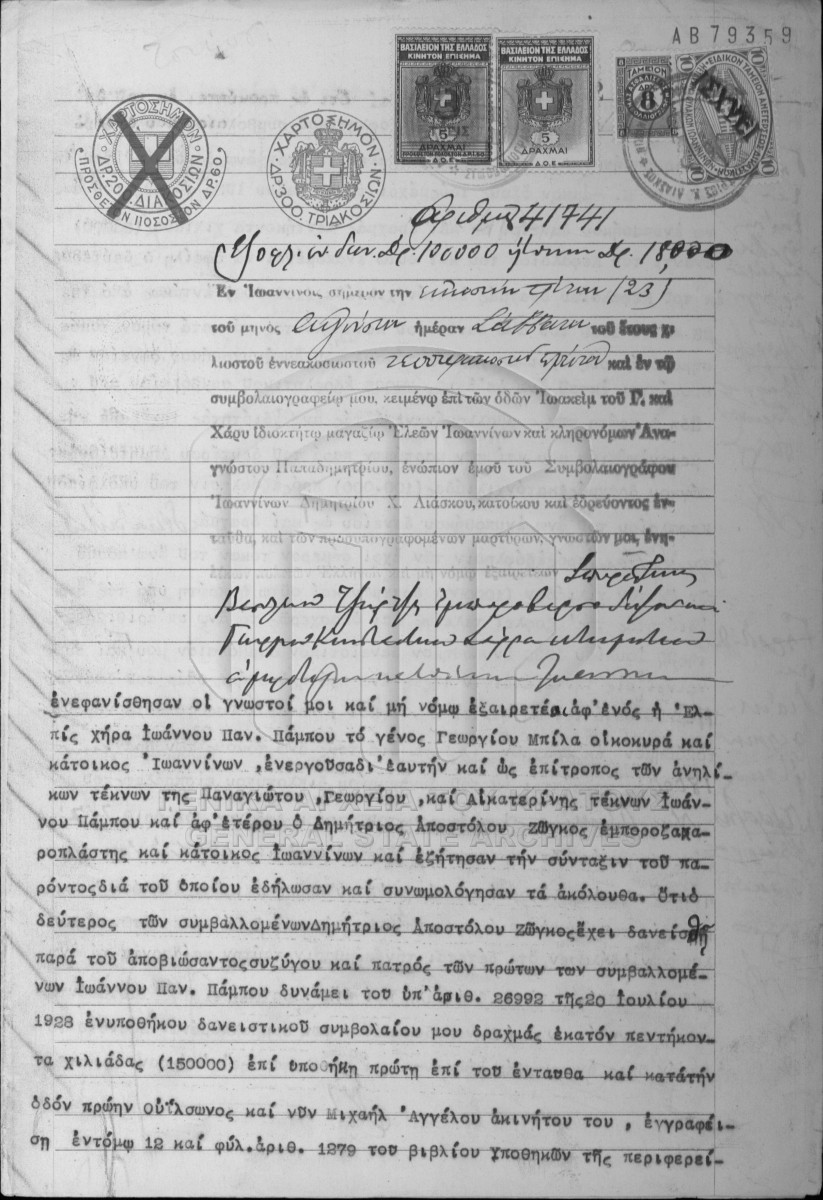 ΑΒ79359
ΒΑΣΙΛΕΙΟΝ ΤΗΣ ΕΛΛΑΔΟΣ
ΚΙΝΗΤΟΝ ΕΠΙΣΗΜΑ
5
ΔΡΑΧΜΑΙ
ΒΑΣΙΛΕΙΟΝ ΤΗΣ ΕΛΛΑΔΟΣ
ΚΙΝΗΤΟΝ ΕΠΙΣΗΜΑ
5
ΔΡΑΧΜΑΙ
ΤΑΜΕΙΟΝ
8
10
ΙΣΧΥΕΙ
ΧΑΡΤΟΣΗΜΟΝ
ΔΡ 200 ΔΙΑΚΟΣΙΩΝ
ΠΡΟΣΘΕΤΟΝ ΠΟΣΟΣΤΟΝ ΔΡ. 60
ΧΑΡΤΟΣΗΜΟΝ
ΔΡ. 300 ΤΡΙΑΚΟΣΙΩΝ
Αριθμός 41741
Εξοφλ. δαν. Δρ. 100000 Δρ. 18000
Ἐν Ἰωαννίνοις σήμερον τὴν εικοστήν τρίτην (23)
τοῦ μηνὸς Αυγούστου ἡμέραν Σάββατον τοῦ ἔτους χι
λιοστοῦ ἐννεακοσιοστοῦ τεσσαρακοστού πρώτου καὶ ἐν τῷ
συμβολαιογραφείῳ μου, κειμένῳ ἐπὶ τῶν ὁδῶν Ἰωακεὶμ τοῦ Γ. καὶ
Χάρυ ἰδιοκτήτῳ μαγαζίῳ Ἐλεῶν Ἰωαννίνων καὶ κληρονόμων Ἀνα-
γνώστου Παπαδημητρίου, ἐνώπιον ἐμοῦ τοῦ Συμβολαιογράφου
Ἰωαννίνων Δημητρίου Χ. Λιάσκου, κατοίκου καὶ ἑδρεύοντος ἐν-
ταῦθα, καὶ τῶν προσυπογραφομένων μαρτύρων, γνωστῶν μοι, ἐνη-
μὴ νόμῳ ἐξαιρετέων
ἐνεφανίσθησαν οἱ γνωστοί μοι καί μή νόμῳ ἐξαιρετέοι ἀφ'ἑνός ἡ Ἐλ-
πίς χήρα Ιωάννου Παν. Πάμπου τό γένος Γεωργίου Μπίλα οἰκοκυρά καί
κάτοικος Ἰωαννίνων ,ἐνεργοῦσαδι'ἑαυτήν καί ὡς ἐπίτροπος τῶν ἀνηλί-
κων τέκνων της Παναγιώτου ,Γεωργίου ,καί Αἰκατερίνης τέκνων Ἰωάν-
νου Πάμπου καί ἀφ'ἑτέρου ὁ Δημήτριος Ἀποστόλου Ζῶγκος ἐμποροζαχα-
ροπλάστης καί κάτοικος Ἰωαννίνων καί ἐζήτησαν τήν σύνταξιν τοῦ πα-
ρόντοςδιά τοῦ ὁποίου ἐδήλωσαν καί συνωμολόγησαν τά ἀκόλουθα. Ὅτιὁ
δεύτερος τῶν συμβαλλομένωνΔημήτριος Ἀποστόλου Ζῶγκοςἔχει δανεισθῆ
παρά τοῦ ἀποβιώσαντοςσυζύγου καί πατρός τῶν πρώτων των συμβαλλομέ-
νων Ἰωάννου Παν. Πάμπου δυνάμει τοῦ ὑπ'ἀριθ. 26992 τῆς20 Ἰουλίου
1928 ἐνυποθήκου δανειστικοῦ συμβολαίου μου δραχμάς ἑκατόν πεντήκον-
τα χιλιάδας (150000) ἐπί ὑποθήκῃ πρώτῃ ἐπί τοῦ ἐνταῦθα καί κατάτήν
ὁδόν πρώην Οὐΐλσωνος καί νῦν Μιχαήλ Ἀγγέλου ἀκινήτου του , ἐγγραφεί-
σῃ ἐντόμῳ 12 καί φύλ.ἀριθ. 1279 τοῦ βιβλίου Ὑποθηκῶν τῆς περιφερεί-
ΓΕΝΙΚΑ ΑΡΧΕΙΑ ΤΟΥ ΚΡΑΤΟΥΣ
GENERAL STATE ARCHIVES